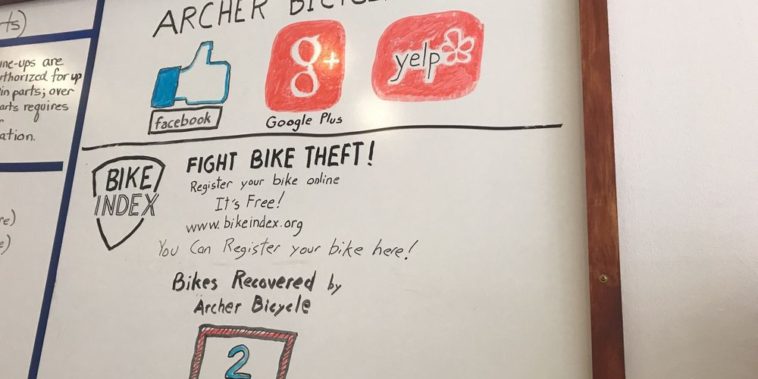 ts)
une-ups are
thorized for up
in parts; over
arts requires
ation.
ARCHER BICYCLE
facebook
g+
Google Plus
yelp
BIKE
INDEX
FIGHT BIKE THEFT!
Register your bike online
It's Free!
www.bikeindex.org
You Can Register your bike here!
Bikes Recovered by
Archer Bicycle
2
re)
e)